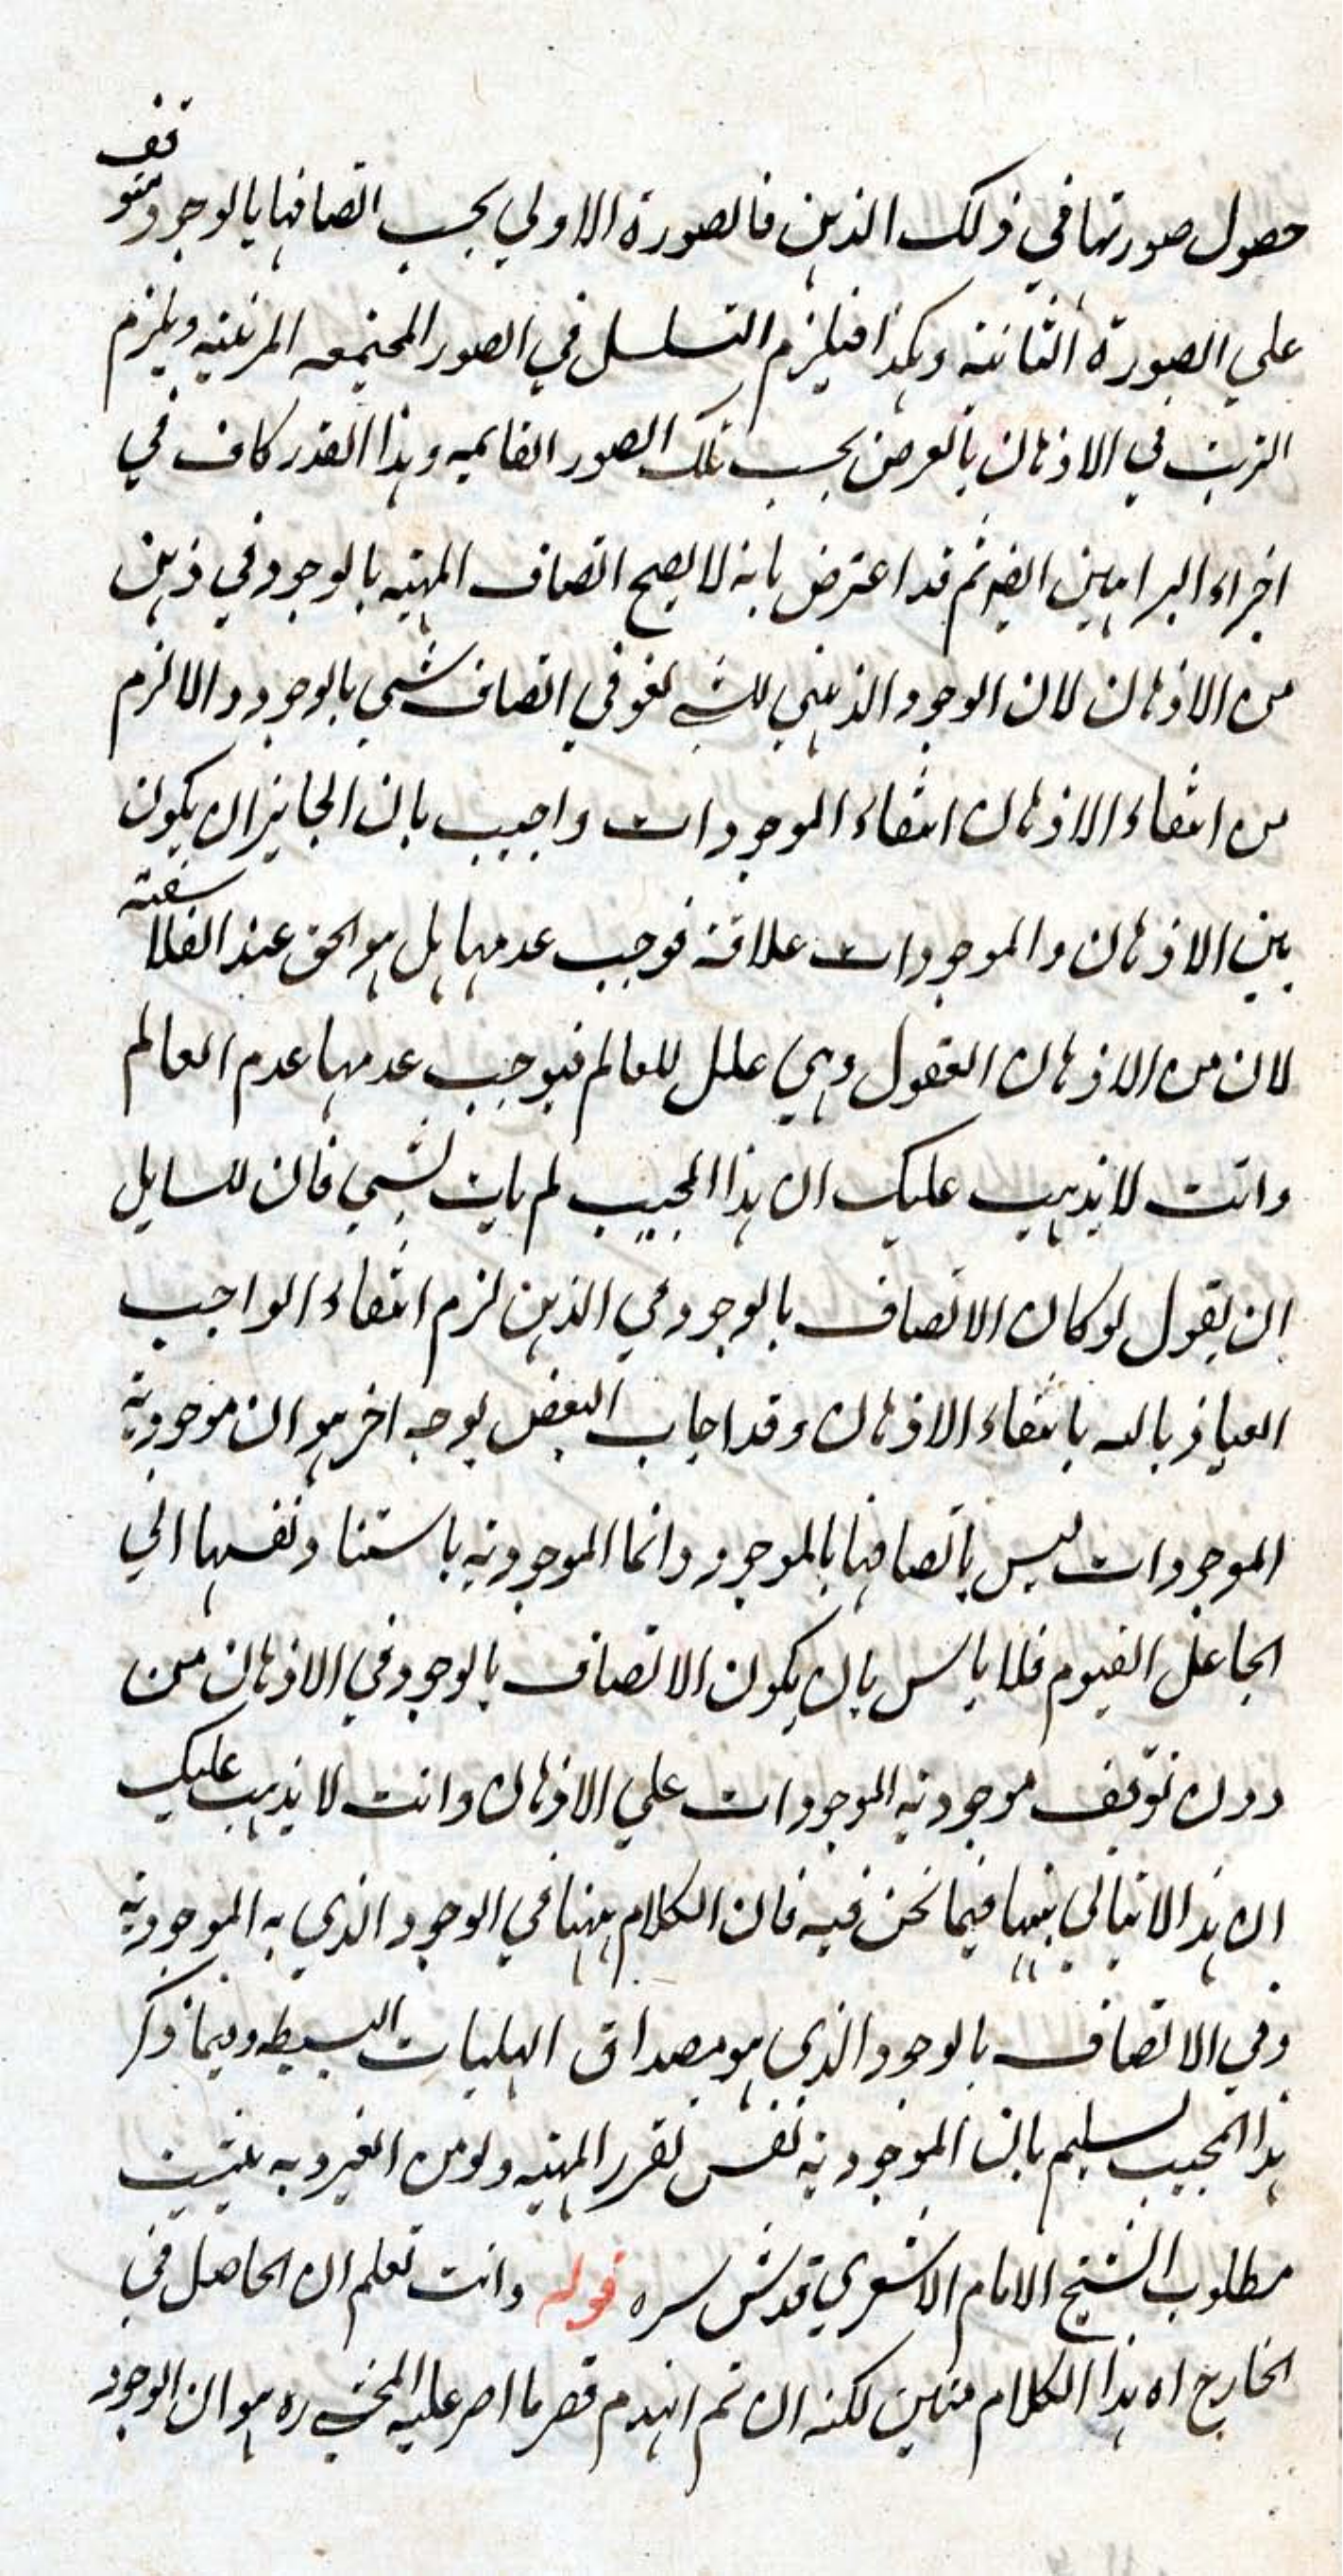 حصول صورتها في ذلك الذهن فالصورة الاولي يجب اتصافها بالوجود متوقف
علي الصورة الثانية وهكذا فيلزم التسلسل في الصور المجتمعه المرتبه ويلزم
الترتب في الاذهان بالعرض بحسب تلك الصور القايمه وهذا القدر كاف في
اجراء البراهين ايضا ثم قد اعترض بانه لا يصح اتصاف المهيه بالوجود في ذهن
من الاذهان لان الوجود الذهني للشي لغو في اتصاف شي بالوجود والا لزم
من انتفاء الاذهان انتفاء الموجودات واجيب بان الجايز ان يكون
بين الاذهان والموجودات علاقة فوجب عدمها بل هو الحق عند الفلاسفة
لان من الاذهان العقول وهي علل للعالم فيوجب عدمها عدم العالم
وانت لا يذهب عليك ان هذا المجيب لم يات بشي فان للسايل
ان يقول لو كان الاتصاف بالوجود في الذهن لزم انتفاء الواجب
العياذ بالله بانتفاء الاذهان وقد اجاب البعض بوجه اخر هو ان موجودية
الموجودات ليس باتصافها بالموجود وانما الموجودية باستناد نفسها الي
الجاعل القيوم فلا باس بان يكون الاتصاف بالوجود في الاذهان من
دون توقف موجودية الموجودات علي الاذهان وانت لا يذهب عليك
ان هذا لا يتاتي فيما نحن فيه فان الكلام ههنا في الوجود الذي به الموجودية
وفي الاتصاف بالوجود الذي هو مصداق الهليات البسيطه وفيما ذكر
هذا المجيب تسليم بان الموجودية نفس تقرر المهيه ولو من الغير وبه يثبت
مطلوب الشيخ الامام الاشعري قدس سره قوله وانت تعلم ان الحاصل في
الخارج اه هذا الكلام متين لكنه ان تم انهدم قصر ما اصر عليه المحشي ره هو ان الوجود